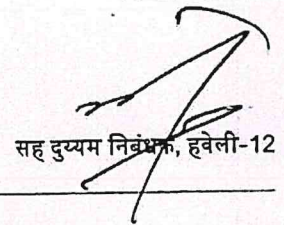 सह दुय्यम निबंधक, हवेली-12